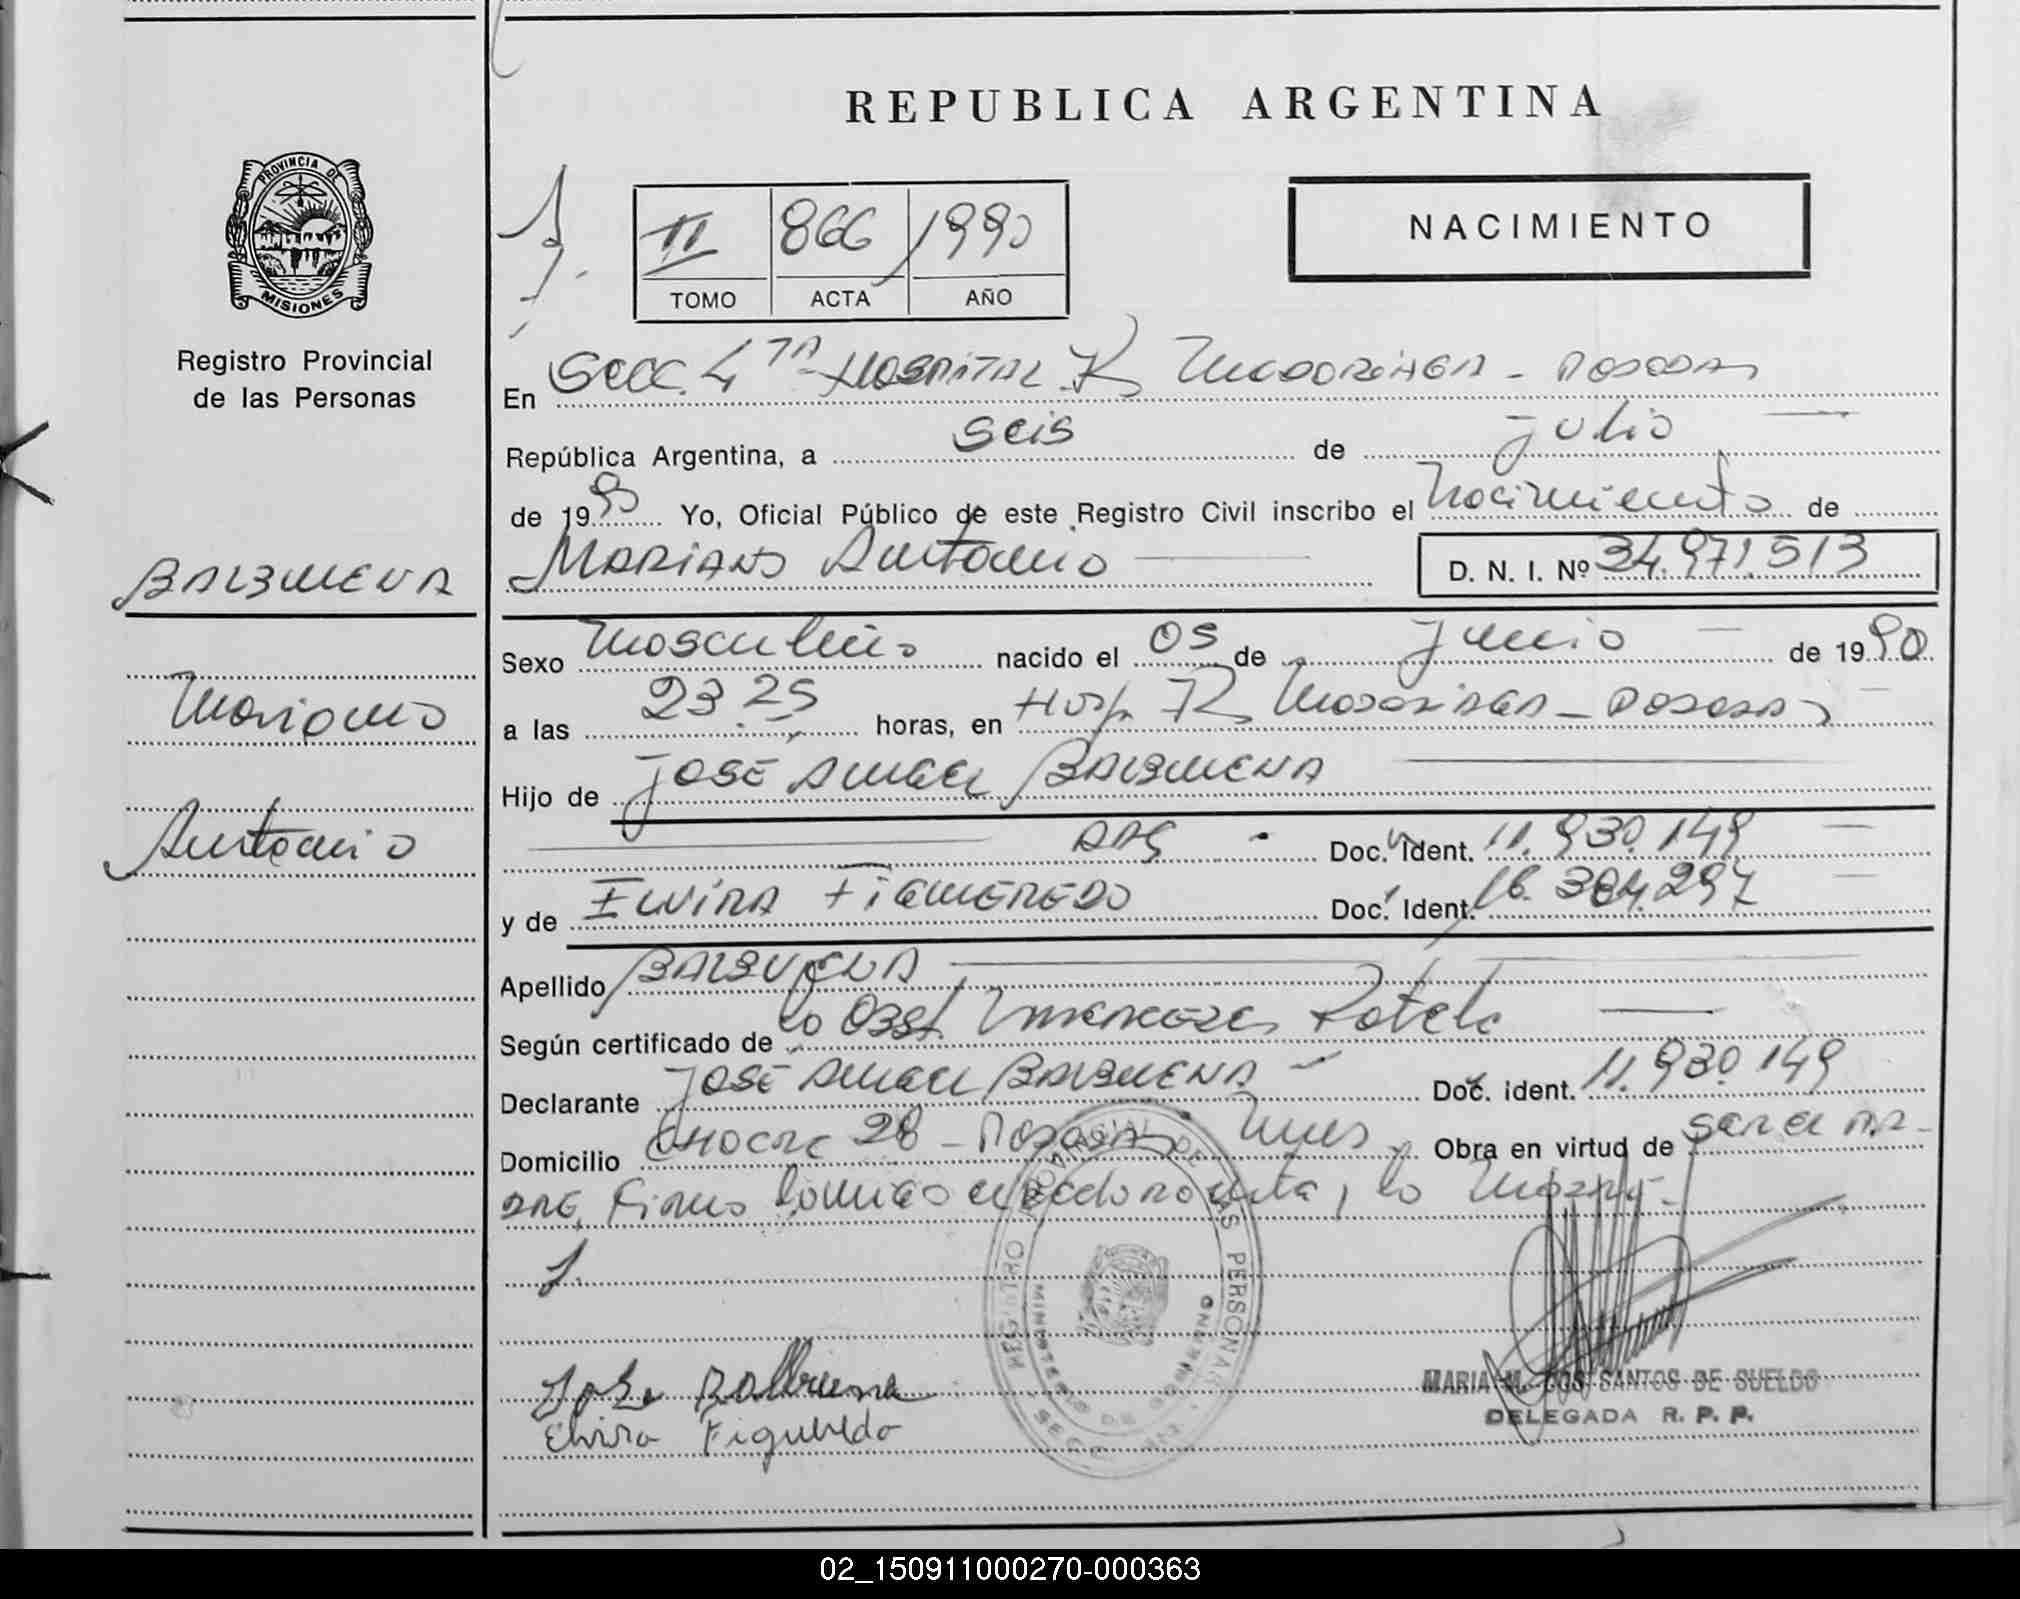 REPUBLICA ARGENTINA
PROVINCIA DE
MISIONES
Registro Provincial
de las Personas
II 866 1990
TOMO ACTA AÑO
NACIMIENTO
En Secc. 4ta Hospital R Madariaga - Posadas
República Argentina, a seis de julio
de 1990 Yo, Oficial Público de este Registro Civil inscribo el Nacimiento de
BALBUENA
Mariano Antonio D. N. I. Nº 34.971.513
Sexo Masculino nacido el 05 de Junio de 1990
Mariano
a las 23.25 horas, en Hosp. R Madariaga - Posadas
Hijo de José Angel BALBUENA
Antonio
ARG Doc. Ident. 11.930.149
y de Elvira Figueredo Doc. Ident. 16.384.297
Apellido BALBUENA
Según certificado de la Obst. Mercedes Rotela
Declarante José Angel BALBUENA Doc. ident. 11.930.149
Domicilio Chacra 28 - Posadas Mnes. Obra en virtud de ser el pa-
dre, Firma conmigo el declarante, la madre
REGISTRO PROVINCIAL DE LAS PERSONAS
MINISTERIO DE GOBIERNO
SECC.
Jose Balbuena
Elvira Figueredo
MARIA M. DOS SANTOS DE SUELDO
DELEGADA R. P. P.
02_150911000270-000363